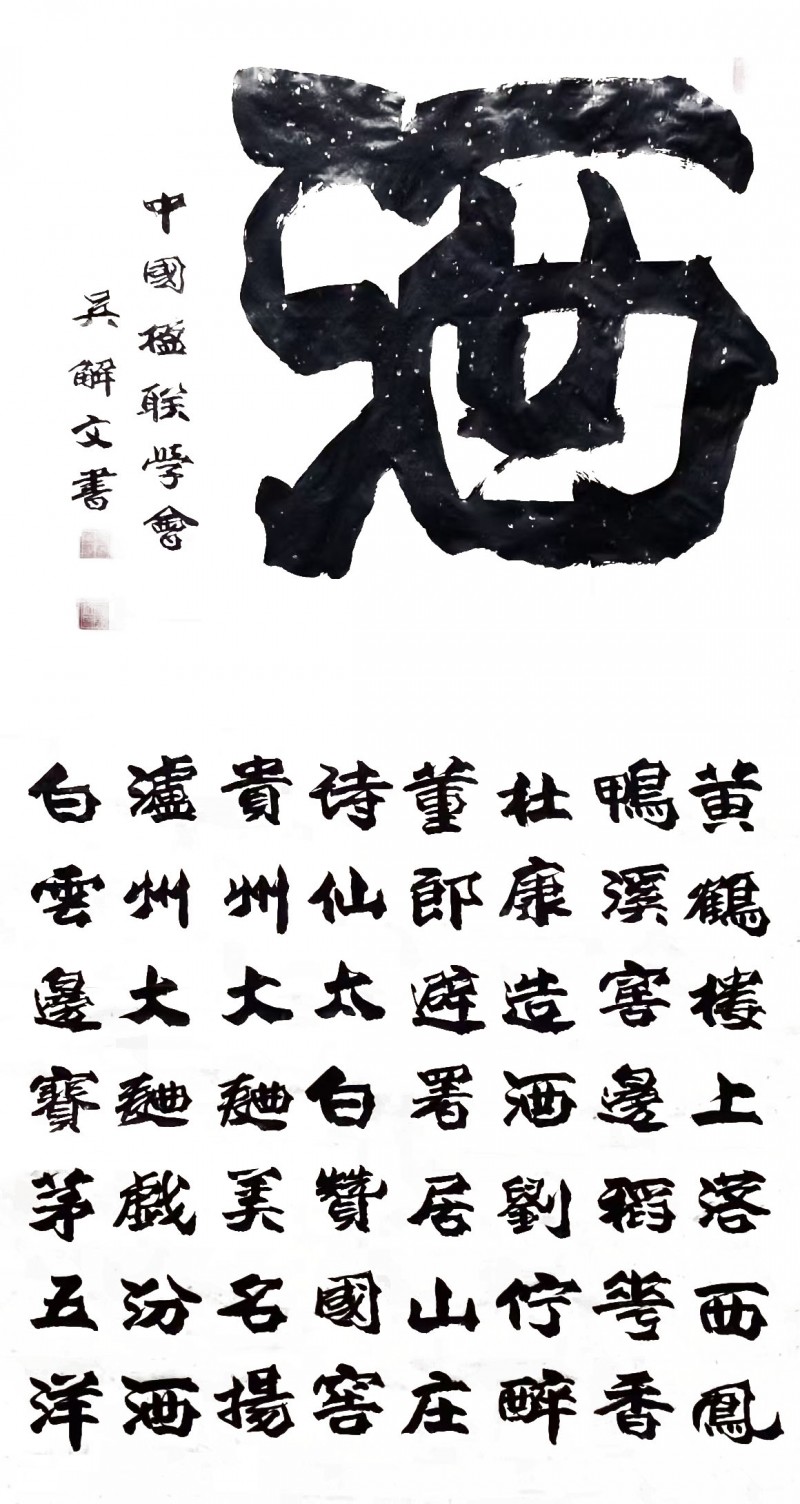 酒
中國楹联學會
吴解文書
黄鶴楼上落西鳳
鴨溪窖邊稻花香
杜康造酒劉伶醉
董郎避署居山庄
诗仙太白贊國窖
貴州大麯美名揚
瀘州大麯戯汾酒
白雲邊賽茅五洋